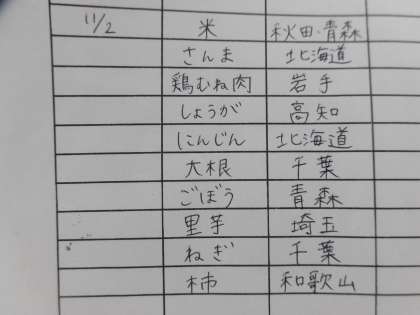 11/2 米 秋田・青森
さんま 北海道
鶏むね肉 岩手
しょうが 高知
にんじん 北海道
大根 千葉
ごぼう 青森
里芋 埼玉
ねぎ 千葉
柿 和歌山